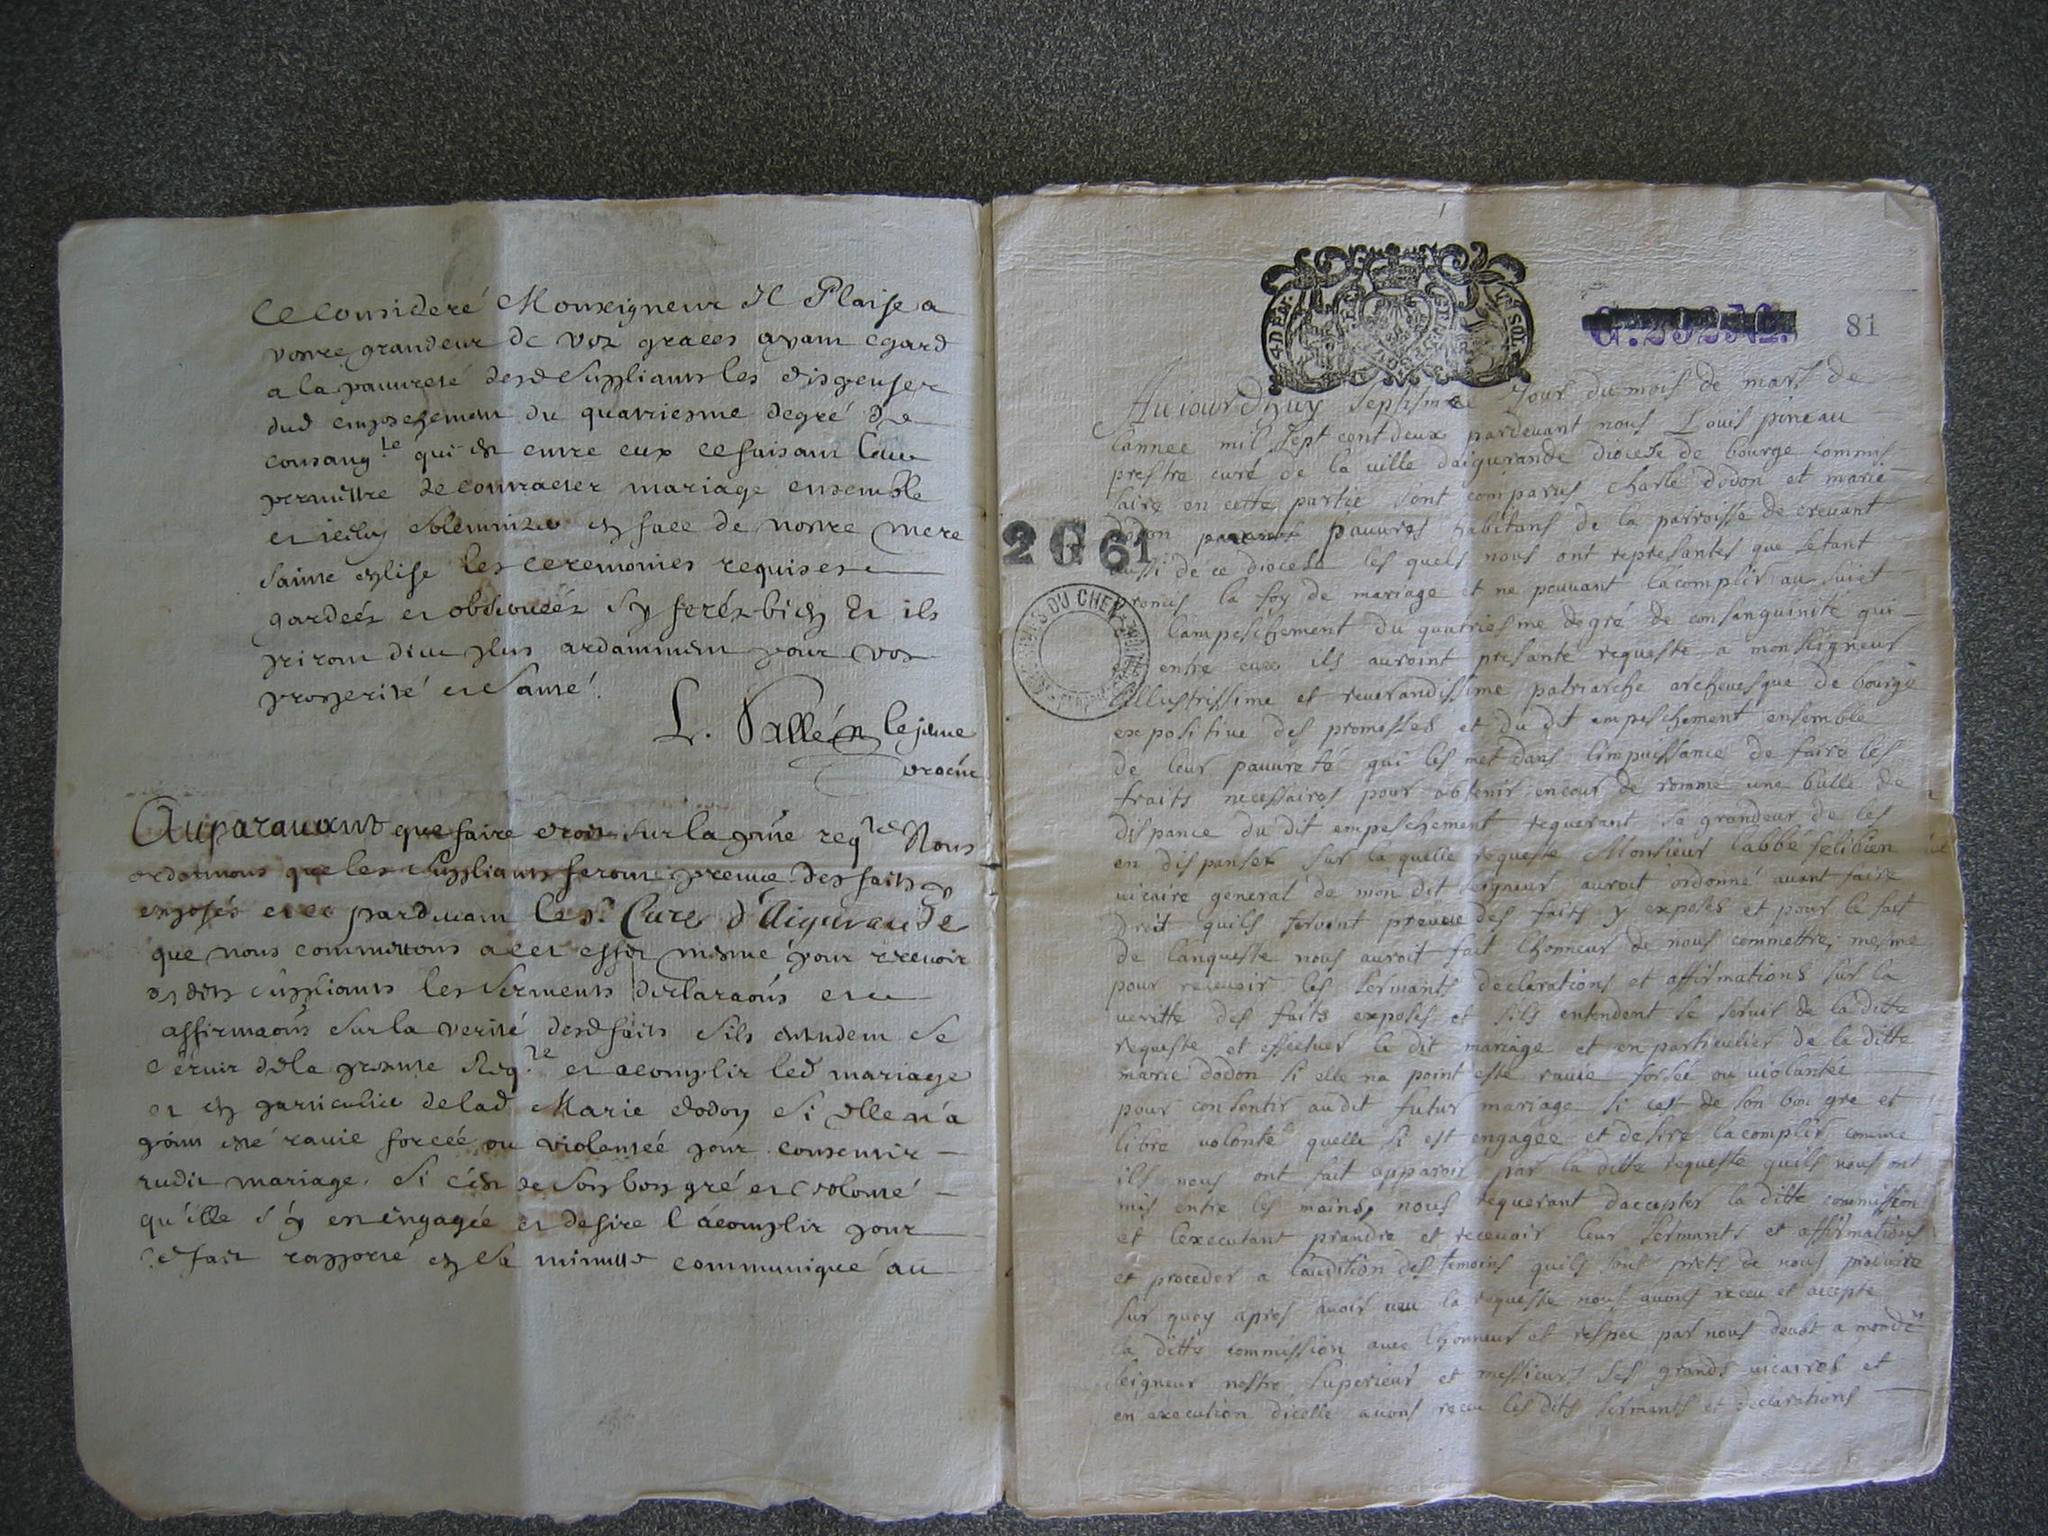 Ce Consideré Monseigneur Il Plaise a
vostre grandeur de vos graces ayant egard
a la pauvreté desd Suppliants les dispenser
dud empeschement du quatriesme degré de
consang.té qui est entre eux ce faisant leur
permettre de contracter mariage ensemble
et iceluy solemnizer en face de nostre mere
sainte eglise les ceremonies requises
gardeés et observeés Sy ferés bien Et ils
priront dieu plus ardamment pour vos
prosperité et santé.
L. Vallén le jeune
Auparavant que faire droit sur la pnte reqte Nous
ordonnons que les Suppliants feront preuve des faits y
exposés et ce pardevant le Sr Curé d'Aigurande
que nous commettons a cet effet mesme pour recevoir
desdits suppliants les serments declaraons et
affirmaons sur la verité desd faits sils entendent se
servir de la presente Reqte et acomplir led mariage
et en particulier de lad Marie dodon si elle n'a
point esté ravie forcée ou violentée pour consentir
audit mariage. Si c'est de son bon gré et volonté
qu'elle s'y est engagée et desire l'acomplir pour
ce fait rapporté en sa minutte communiqué au
G. 292 No.
81
4 DEN.
SOL
Aujourdhuy septisme jour du mois de mars de
lannee mil sept cent deux pardevant nous Louis pineau
prestre curé de la ville daigurande diocese de bourge commis
faire en cette partie sont comparus charle dodon et marie
dodon pauvres habitans de la parroisse de crevant
2 G 61
aussi de ce diocese les quels nous ont representes que sétant
promis la foy de mariage et ne pouvant lacomplir au suiet
de lampeschement du quatriesme degré de consanguinité qui
est entre eux ils auroint presanté requeste a monseigneur
ARCHIVES DU CHER
lillustrissime et reverandissime patriarche archevesque de bourge
expositive des promesses et du dit empeschement ensemble
de leur pauvreté qui les met dans limpuissance de faire les
fraits necessaires pour obtenir en cour de romme une bulle de
dispance du dit empeschement requerant sa grandeur de les
en dispanser sur la quelle requeste Monsieur labbé felibien
vicaire general de mon dit seigneur auroit ordonné avant faire
droit quils feroint preuve des faits y exposés et pour le fait
de lanqueste nous auroit fait lhonneur de nous commettre, mesme
pour recevoir les sermants declarations et affirmations sur la
veritté des faits exposés et sils entendent se servir de la ditte
requeste et effectuer le dit mariage et en particulier de la ditte
marie dodon si elle na point esté ravie forsée ou violantée
pour consentir au dit futur mariage si cest de son bon gre et
libre volonté quelle si est engagée et desire lacomplir comme
ils nous ont fait apparoir par la ditte requeste quils nous ont
mis entre les mains, nous requerant daccepter la ditte commission
et lexecutant prandre et recevoir leur sermants et affirmations
et proceder a laudition des temoins quils sont prets de nous produire
sur quoy apres avoir veu la requeste nous avons receu et accepté
la ditte commission avec lhonneur et respec par nous deubt a mondit
seigneur nostre superieur et messieurs ses grands vicaires et
en execution dicelle avons receu les dits sermants et declarations